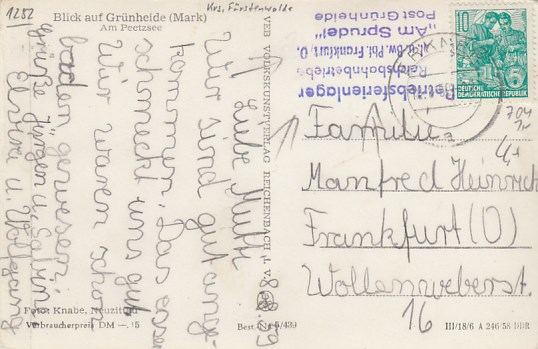 1252
Krs. Fürstenwalde
Blick auf Grünheide (Mark)
Am Peetzsee
Liebe Mutti
Wir sind gut ange-
kommen. Das essen
schmeckt uns gut
Wir waren schon
baden gewesen.
Grüße Jürgen u. Sabine
u. Wolfgang
Foto: Knabe, Neuzittau
Verbraucherpreis DM —.15
VEB VOLKSKUNSTVERLAG REICHENBACH i. V.
Betriebsferienlager
Reichsbahnbetriebs
Frankfurt O.
"Am Sprudel"
Post Grünheide
10
5
DEUTSCHE
DEMOKRATISCHE REPUBLIK
704
4,-
Familie
Manfred Heinrich
Frankfurt (O)
Wollenweberst.
16
III/18/6 A 246/58 DDR